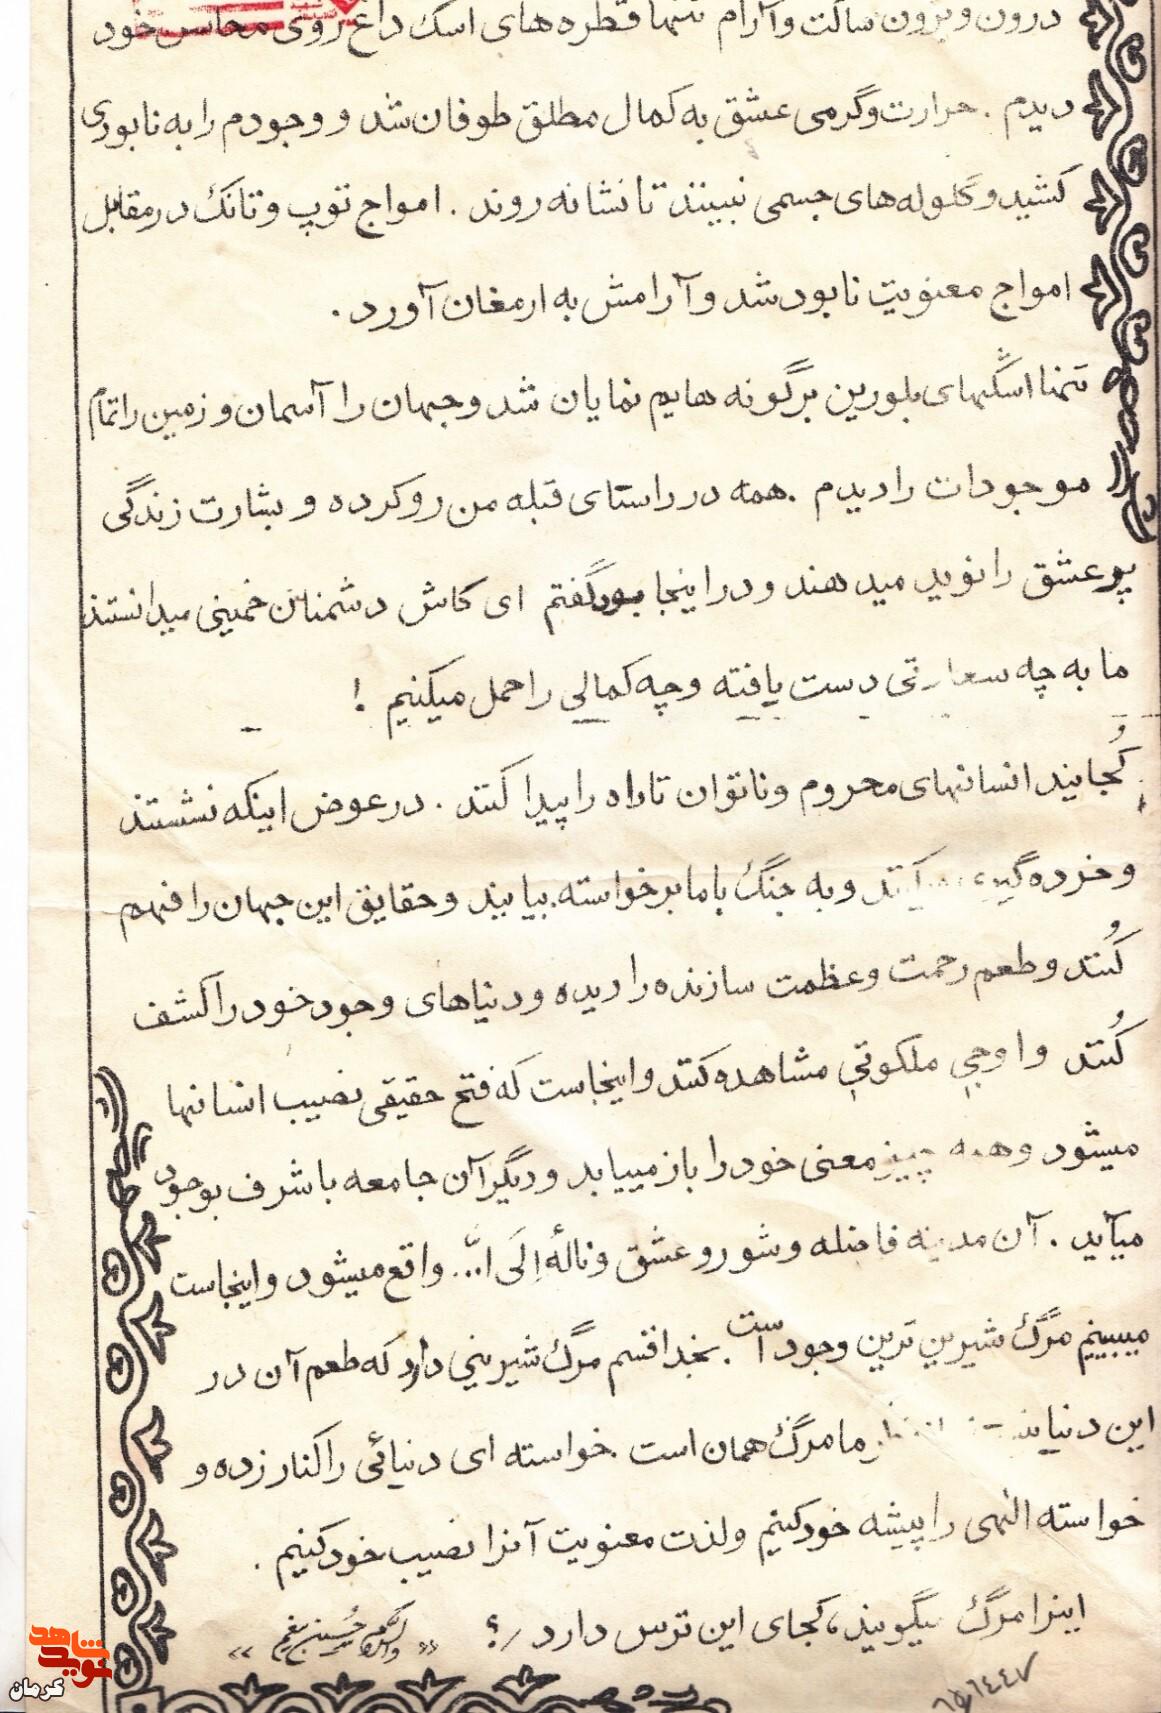 درون و برون ساکت و آرام تنها قطره های اشک داغ روی محاسن خود
دیدم . حرارت و گرمی عشق به کمال مطلق طوفان شد و وجودم را به نابودی
کشید و گلوله های جسمی نبینند تا نشانه روند . امواج توپ و تانک در مقابل
امواج معنویت نابود شد و آرامش به ارمغان آورد .
تنها اشکهای بلورین بر گونه هایم نمایان شد و جهان را آسمان و زمین را تمام
موجودات را دیدم . همه در راستای قبله من رو کرده و بشارت زندگی
پر عشق را نوید میدهند و در اینجا بود گفتم ای کاش دشمنان خمینی میدانستند
ما به چه سعادتی دست یافته و چه کمالی را حمل میکنیم !
کُجایند انسانهای محروم و ناتوان تا راه را پیدا کنند . در عوض اینکه نشستند
و خرده و به جنگ با ما برخواسته بیایند و حقایق این جهان را فهم
کُنند و طعم رحمت و عظمت سازنده را دیده و دنیاهای وجود خود را کشف
کُنند و اوجی ملکوتی مشاهده کنند و اینجاست که فتح حقیقی نصیب انسانها
میشود و همه چیز معنی خود را باز مییابد و دیگر آن جامعه با شرف بوجود
میآید . آن مدینه فاضله و شور و عشق و نالهٔ اِلَی ا... واقع میشود و اینجاست
میبینم مرگ شیرین ترین وجود است . بخدا قسم مرگ شیرینی دارد که طعم آن در
این دنیا ما مرگ همان است . خواسته ای دنیائی را کنار زده و
خواسته الهی را پیشه خود کنیم و لذت معنویت آنرا نصیب خود کنیم .
اینرا مرگ میگویند، کجای این ترس دارد ؟
شاهد
نوید
کرمان